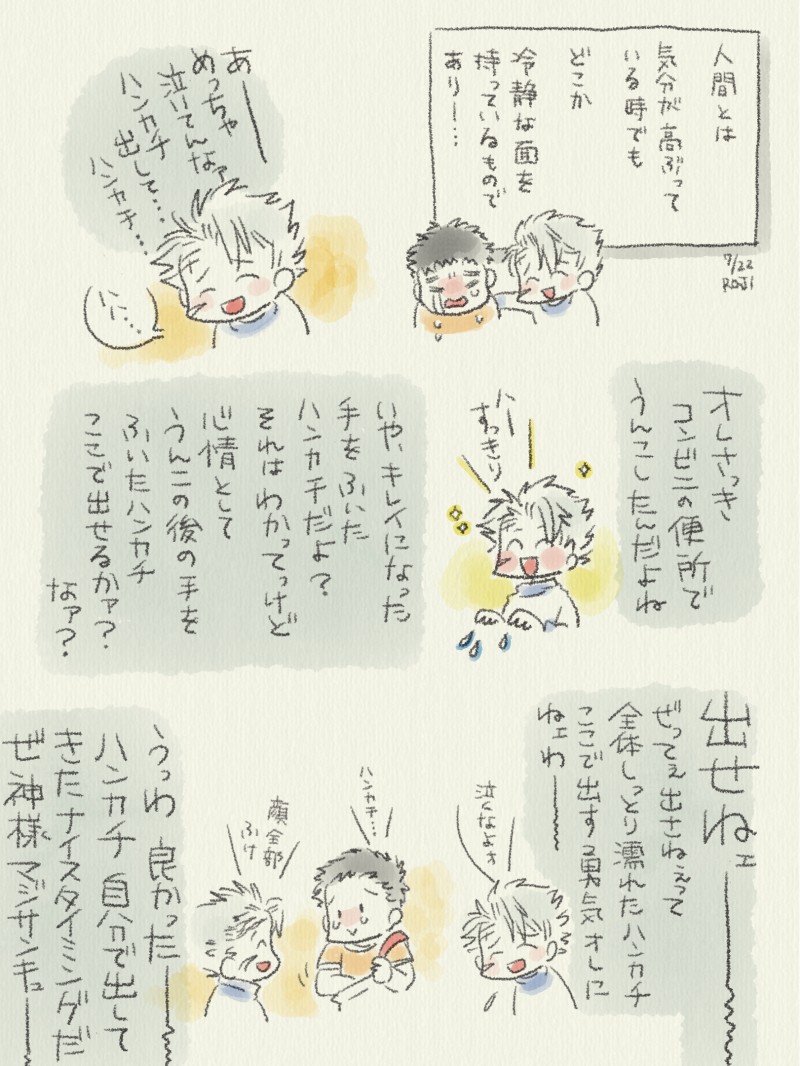 人間とは
気分が高ぶって
いる時でも
どこか
冷静な面を
持っているもので
ありー…
7/22
ROJI
あー
めっちゃ
泣いてんなァ
ハンカチ
出して…
ハンカチ…
に…
オレさっき
コンビニの便所で
うんこしたんだよね
ハー
すっきり
いや、キレイになった
手をふいた
ハンカチだよ?
それはわかってっけど
心情として
うんこの後の手を
ふいたハンカチ
ここで出せるかァ?
なァ?
出せねェー
ぜってぇ出さねぇって
全体しっとり濡れたハンカチ
ここで出す勇気オレに
ねェわー
泣くなよォ
ハンカチ…
顔全部
ふけ
うっわ 良かったー
ハンカチ自分で出して
きたナイスタイミングだ
ぜ神様マジサンキュー